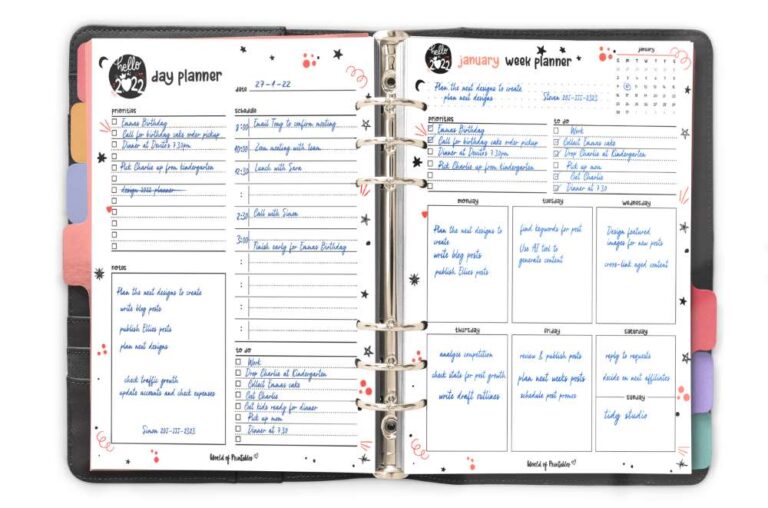 hello
2022
day planner
date 27-1-22
priorities
Emmas Birthday
Call for birthday cake order pickup
Dinner at Devitos 7.30pm
Pick Charlie up from kindergarten
design 2022 planner
schedule
8:00 Email Tony to confirm meeting
10:30 Zoom meeting with team
12:30 Lunch with Sara
2:30 Call with Simon
3:00
Finish early for Emmas Birthday
notes
Plan the next designs to create
write blog posts
publish Ellies posts
plan next designs
check traffic growth
update accounts and check expenses
Simon 205-555-2323
to do
Work
Drop Charlie at Kindergarten
Collect Emmas cake
Get Charlie
Get kids ready for dinner
Pick up mom
Dinner at 7.30
World of Printables
hello
2022
january week planner
january
Plan the next designs to create
plan next designs
Steven 205-555-2323
priorities
Emmas Birthday
Call for birthday cake order pickup
Dinner at Devitos 7.30pm
Pick Charlie up from kindergarten
to do
Work
Collect Emmas cake
Drop Charlie at Kindergarten
Pick up mom
Get Charlie
Dinner at 7.30
monday
Plan the next designs to
create
write blog posts
publish Ellies posts
tuesday
find keywords for post
Use AI tool to
generate content
wednesday
Design featured
images for new posts
cross-link aged content
thursday
analyse competition
check stats for post growth
write draft outlines
friday
review & publish posts
plan next weeks posts
schedule post promos
saturday
reply to requests
decide on next affiliates
sunday
tidy studio
World of Printables